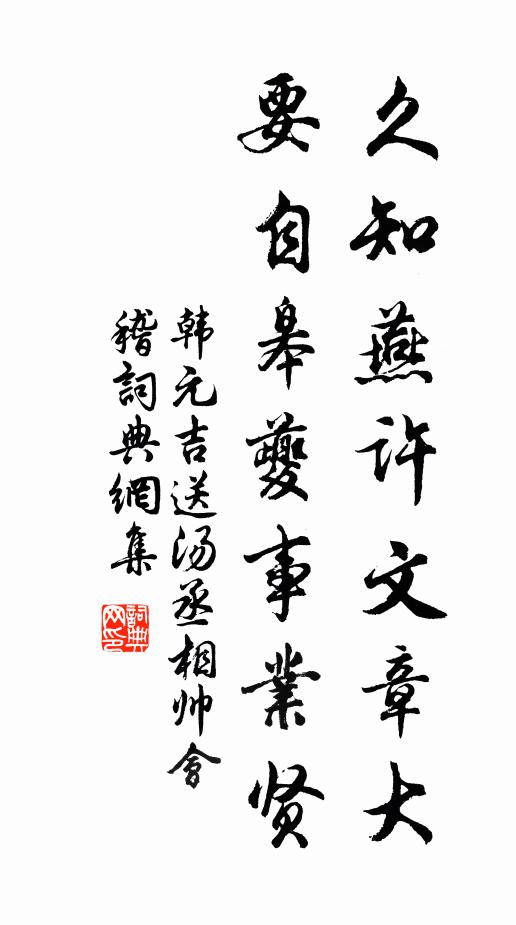 久知燕许文章大
要自皋夔事業贤
韩元吉送汤丞相帅會
稽詞典網集
詞典
网印